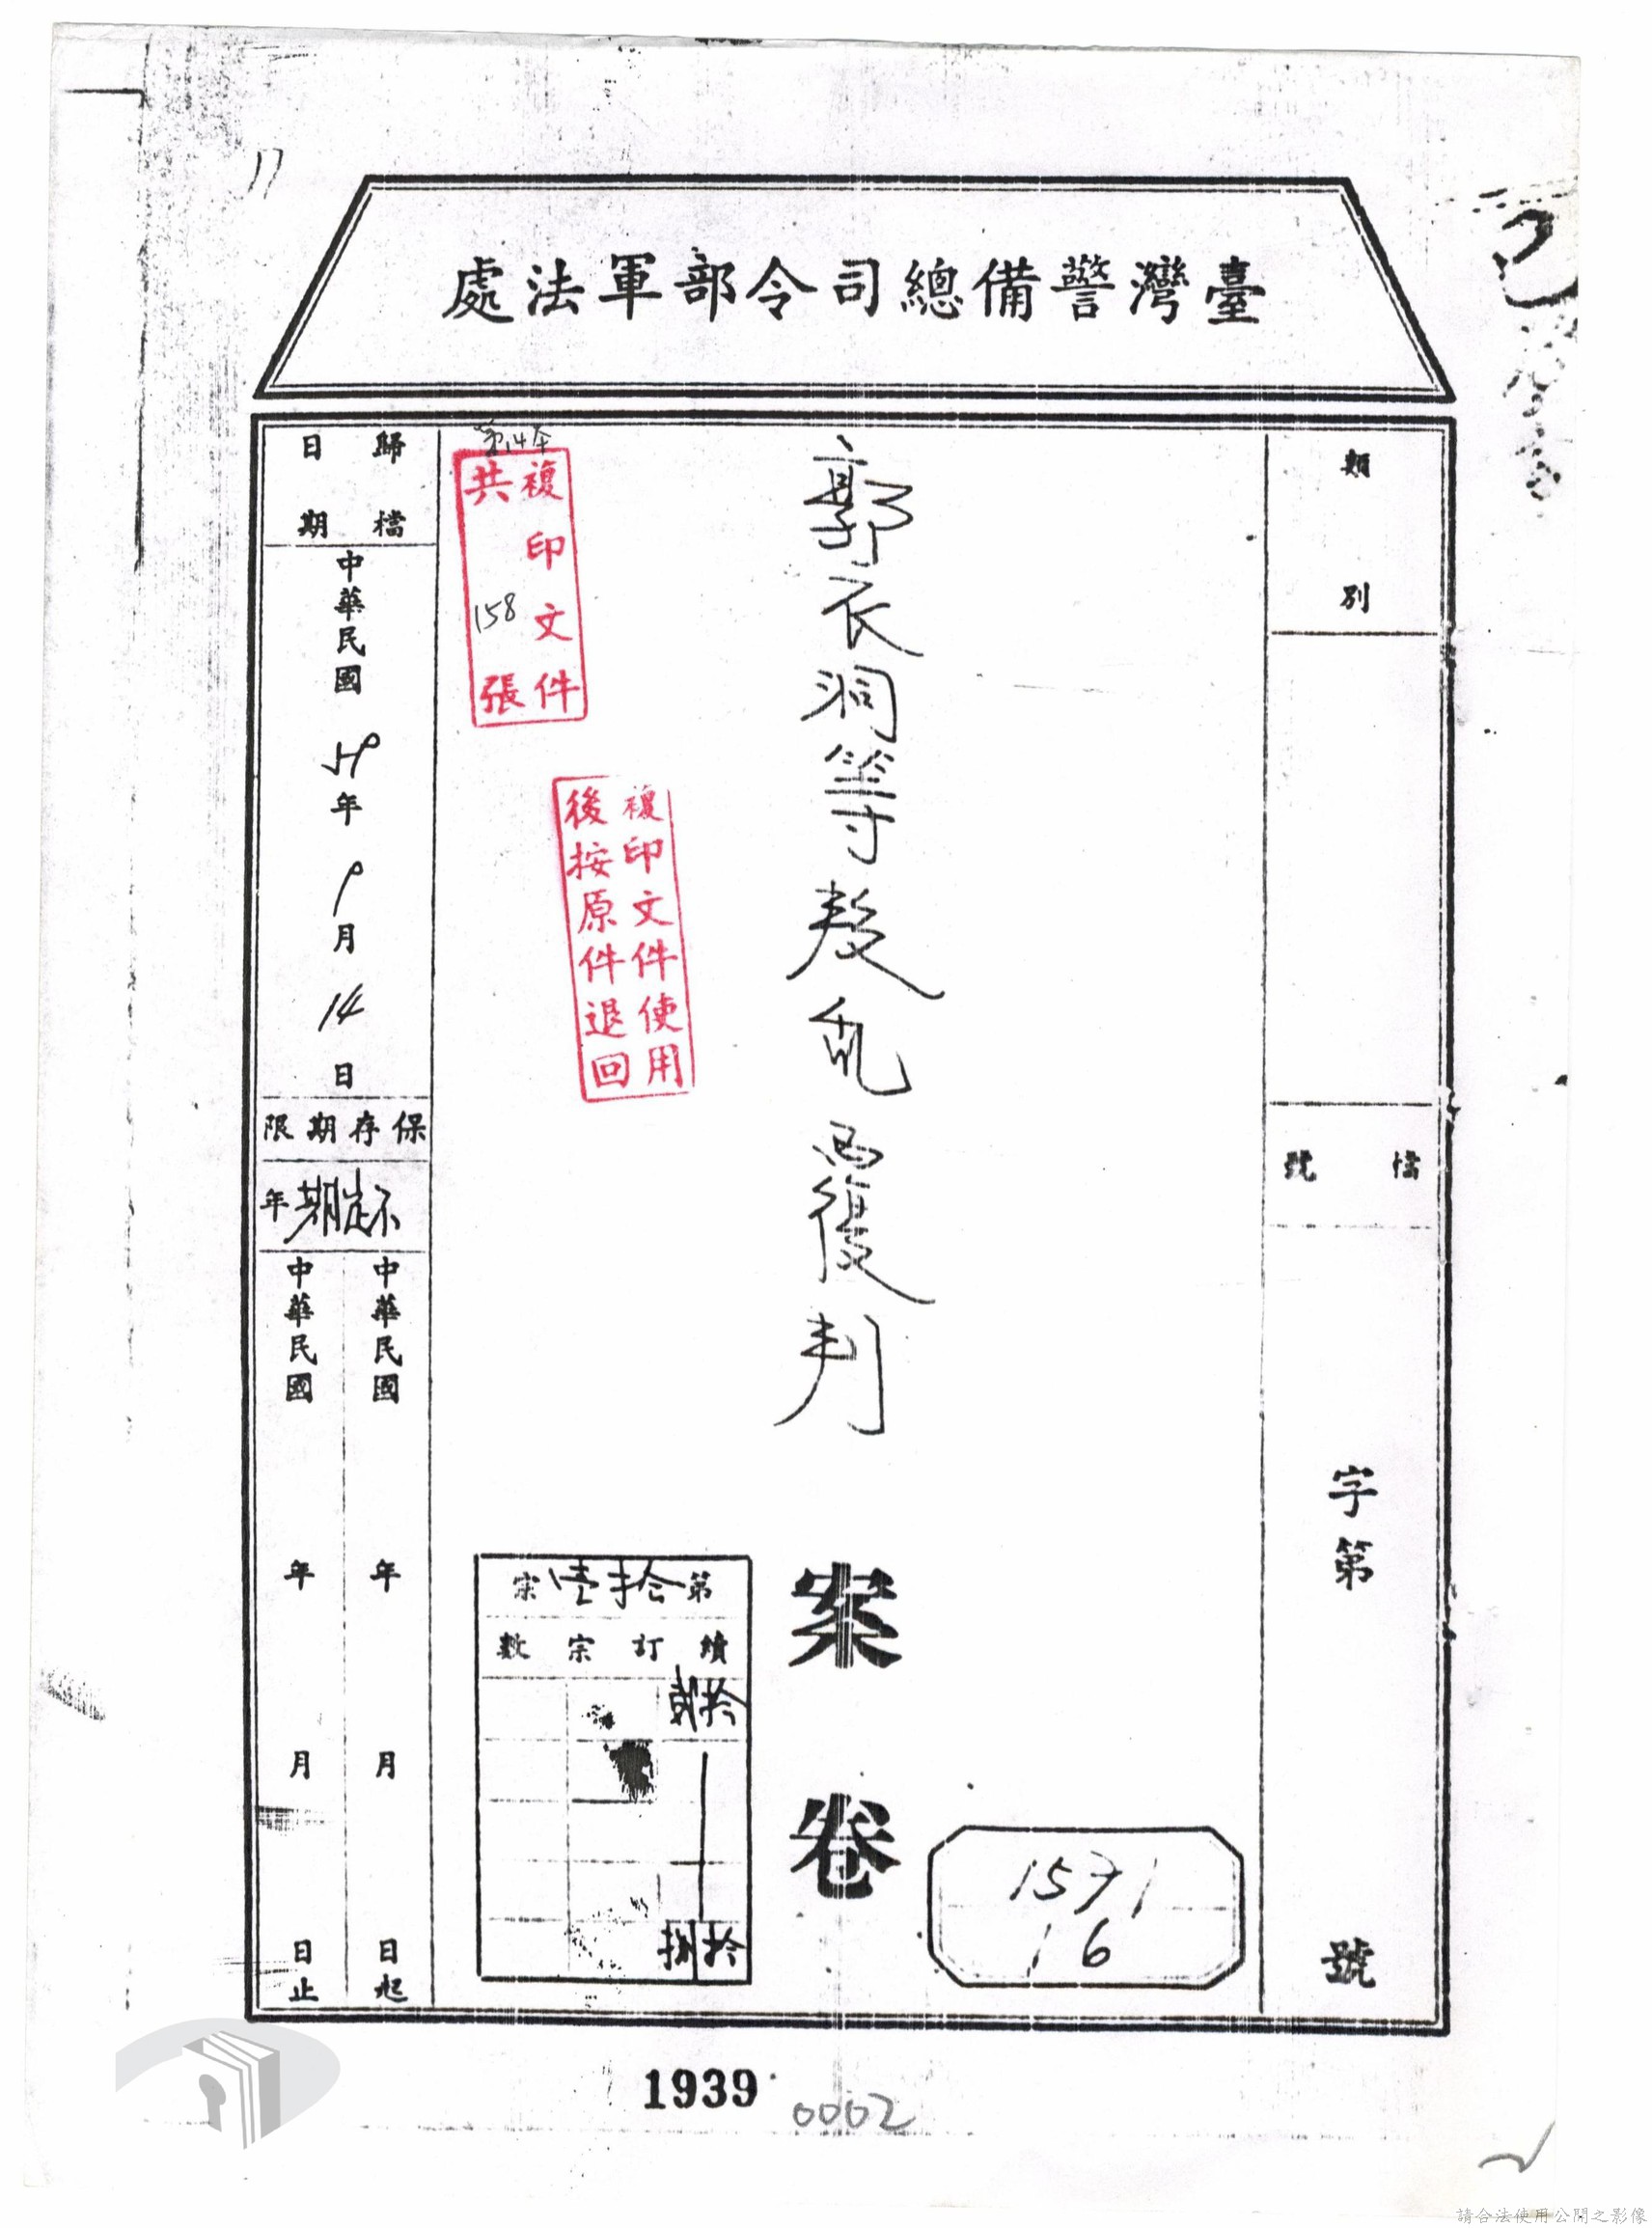 臺灣警備總司令部軍法處
類別
檔號
字第
號
郭衣洞等叛乱西復判
案卷
1571
16
第14本
複印文件
共158張
複印文件使用
後按原件退回
第拾壹宗
續訂宗數
拾貳
拾捌
歸檔
日期
中華民國
年9月14日
保存期限
不定期年
中華民國 年 月 日起
中華民國 年 月 日止
1939
0002
請合法使用公開之影像